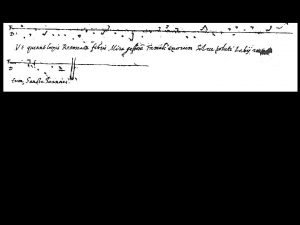 Vt queant laxis Resonare fibris Mira Famuli tuorum Solve polluti Labij
tum, Sancte Ioannes